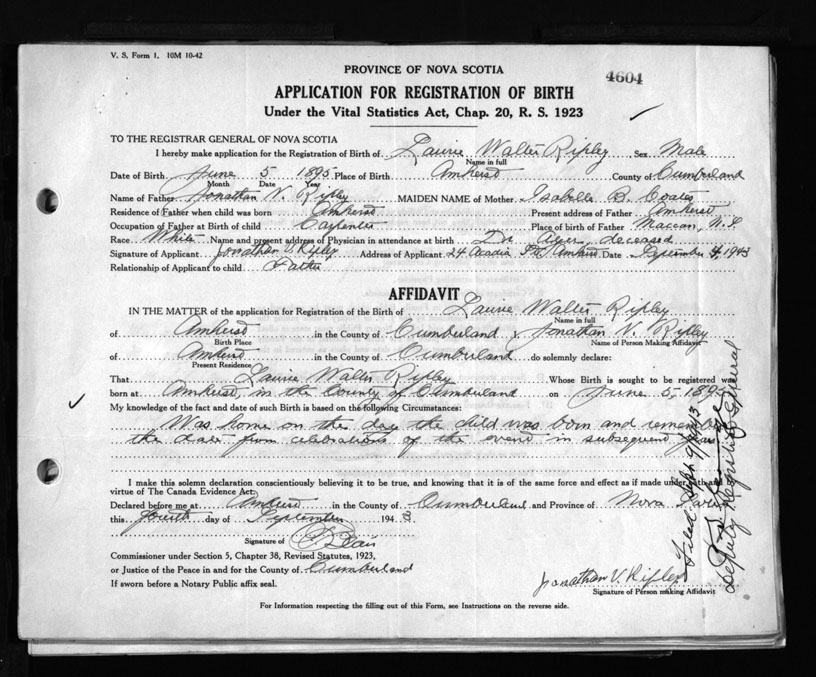 V. S. Form 1. 10M 10-42
PROVINCE OF NOVA SCOTIA
4604
APPLICATION FOR REGISTRATION OF BIRTH
Under the Vital Statistics Act, Chap. 20, R. S. 1923
TO THE REGISTRAR GENERAL OF NOVA SCOTIA
I hereby make application for the Registration of Birth of Laurie Walter Ripley Sex Male
Name in full
Date of Birth June 5 1895 Place of Birth Amherst County of Cumberland
Month Date Year
Name of Father Jonathan V. Ripley MAIDEN NAME of Mother Isabelle B. Coates
Residence of Father when child was born Amherst Present address of Father Amherst
Occupation of Father at Birth of child Carpenter Place of birth of Father Maccan, N.S.
Race White Name and present address of Physician in attendance at birth Dr. deceased
Signature of Applicant Jonathan V. Ripley Address of Applicant 24 Acadia Amherst Date September 4, 1943
Relationship of Applicant to child Father
AFFIDAVIT
IN THE MATTER of the application for Registration of the Birth of Laurie Walter Ripley
Name in full
of Amherst in the County of Cumberland, Jonathan V. Ripley
Birth Place Name of Person Making Affidavit
of Amherst in the County of Cumberland do solemnly declare:
Present Residence
That Laurie Walter Ripley Whose Birth is sought to be registered was
born at Amherst, in the County of Cumberland on June 5 1895
My knowledge of the fact and date of such Birth is based on the following Circumstances:
Was home on the day the child was born and remember
the date from celebrations of the event in subsequent years
I make this solemn declaration conscientiously believing it to be true, and knowing that it is of the same force and effect as if made under oath and
virtue of The Canada Evidence Act.
Declared before me at Amherst in the County of Cumberland and Province of Nova Scotia
this fourth day of September 1943
Signature of Blair
Commissioner under Section 5, Chapter 38, Revised Statutes, 1923,
or Justice of the Peace in and for the County of Cumberland
If sworn before a Notary Public affix seal.
Jonathan V. Ripley
Signature of Person making Affidavit
For Information respecting the filling out of this Form, see Instructions on the reverse side.
Filed Sept 9/1943
Deputy Registrar General